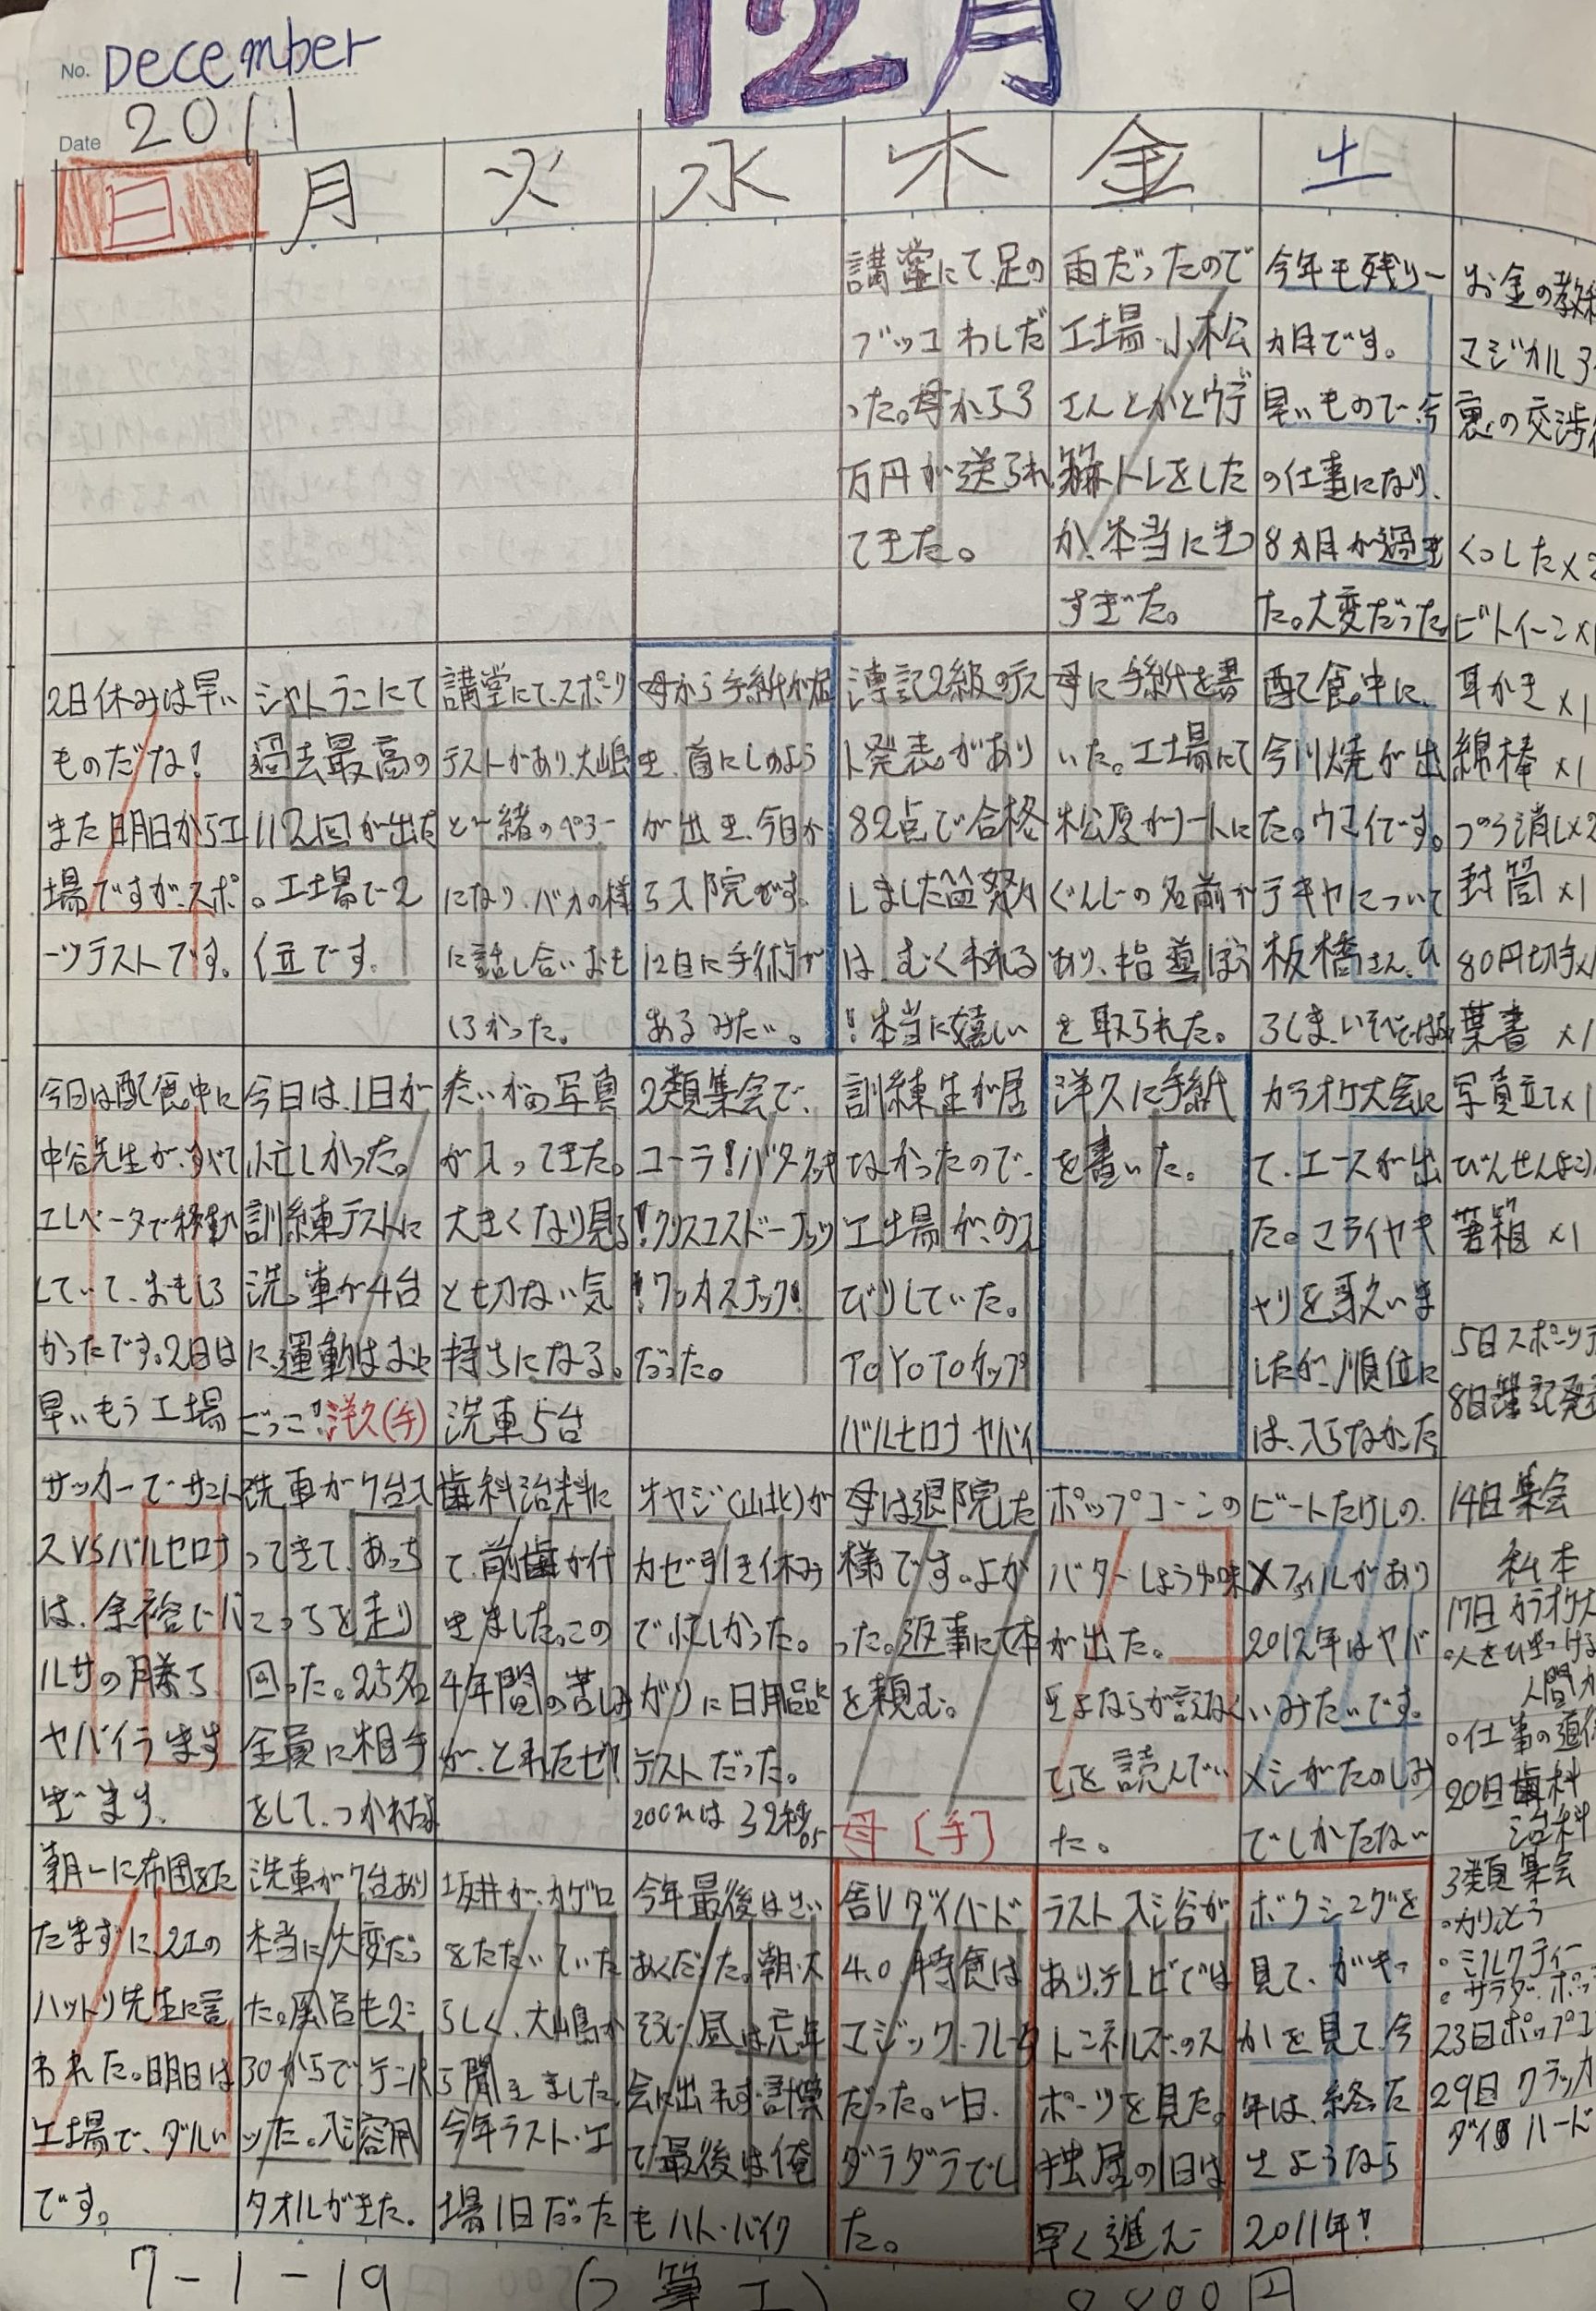 No. December
12月
Date 2011
日 月 火 水 木 金 土
講堂にて、足の
ブッコわしだ
った。母から3
万円が送られ
てきた。
雨だったので
工場、小松
さんとかとウデ
筋トレをした
が、本当にきつ
すぎた。
今年も残り一
カ月です。
早いもので、今
の仕事になり、
8カ月が過き
た。大変だった。
お金の教科
マジカル
裏の交渉
くつした×2
ビトイーン×1
2日休みは早い
ものだな!
また明日から工
場ですが、スポ
ーツテストです。
シャトランにて
過去最高の
112回が出た
。工場で2
位です。
講堂にて、スポーツ
テストがあり、大嶋
と一緒のペアー
になり、バカの様
に話し合いおも
しろかった。
母から手紙が届
き、首にしゅよう
が出き、今日か
ら入院です。
12日に手術が
あるみたい。
簿記2級のテス
ト発表があり
82点で合格
しました
は、むくわれる
!本当に嬉しい
母に手紙を書
いた。工場にて
松原がノートに
ぐんじの名前が
あり、指導ぼう
を取られた。
配食中に、
今川焼が出
た。ウマイです。
テキヤについて
板橋さん、ひ
ろしま、いそべ
耳かき×1
綿棒×1
つめう消し×2
封筒×1
80円切手×1
葉書×1
今日は配食中に
中谷先生が、すべて
エレベータで移動
していて、おもしろ
かったです。2日は
早いもう工場
今日は、1日が
忙しかった。
訓練テストに
洗車が4台
に、運動はおに
ごっこ!洋久(手)
の写真
が入ってきた。
大きくなり見る
と切ない気
持ちになる。
洗車5台
2類集会で、
コーラ!バタークッキ
!クリスコスドーナッツ
!ワッカスナック!
だった。
訓練生が居
なかったので、
工場が、のん
びりしていた。
TOYOTOカップ
バルセロナヤバイ
洋久に手紙
を書いた。
カラオケ大会に
て、エースが出
た。マライヤキ
ャリを歌いま
したが、順位に
は、入らなかった
写真立て×1
びんせん(よこ)
箸箱×1
5日スポーツテ
8日簿記発表
サッカーで、サント
スVSバルセロナ
は、余裕でバ
ルサの勝ち
ヤバイうます
ぎます。
洗車が7台入
ってきて、あっち
こっちを走り
回った。25名
全員に相手
をして、つかれたよ
歯科治料に
て、前歯が付
きました。この
4年間の苦しみ
が、とれたぜ!
オヤジ(山北)が
カゼ引き休み
で忙しかった。
がりに日用品に
テストだった。
200mは32秒05
母は退院した
様です。よか
った。返事にて本
を頼む。
母[手]
ポップコーンの
バターしょうゆ味
が出た。
さよならが言えなく
てを読んでい
た。
ビートたけしの
Xファイルがあり
2012年はヤバ
いみたいです。
メシがたのしみ
でしかたない
14日集会
私本
17日カラオケ大
○人をひきつける
人間力
○仕事の道
20日歯科
治料
朝一に布団をた
たまずに、2工の
ハットリ先生に言
われた。明日は
工場で、ダルい
です。
洗車が7台あり
本当に大変だっ
た。風呂も2:
30からで、テンパ
ッた。入浴用
タオルがきた。
坂井が、カゲロ
をたたいていた
らしく、大嶋か
ら聞きました。
今年ラスト、工
場1日だった
今年最後はさい
あくだった。朝、水
昼は忘年
会に出れず、計算
で、最後は俺
もハト・バイク
舎Vダイハード
4.0 特食は
マジック・フレーク
だった。一日、
ダラダラでし
た。
ラスト入浴が
あり。テレビでは
トンネルズのス
ポーツを見た。
独居の1日は
早く進んだ
ボクシングを
見て、ガキつ
かを見て、今
年は、終った
さようなら
2011年!
3類集会
・かりんとう
・ミルクティー
・サラダ・ポテ
23日ポップコ
29日クラッカ
ダイハード
7-1-19